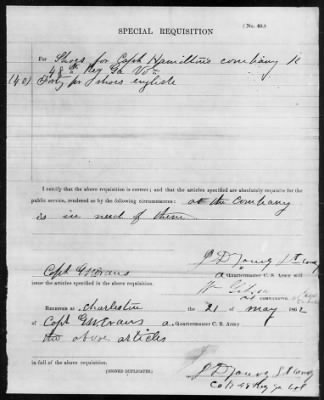 SPECIAL REQUISITION
(No. 40.)
For Shoes for Capt Hamiltons company K
48th Reg Ga Vol
(40) Forty pr shoes english
I certify that the above requisition is correct; and that the articles specified are absolutely requisite for the
public service, rendered so by the following circumstances: as the company
is in need of them
J D Young Lt comg
Capt G M Evans a Quartermaster C. S. Army will
issue the articles specified in the above requisition.
COMMANDING.
Received at Charleston the 21 of May 1862
of Capt G M Evans a. Quartermaster C. S. Army
the above articles
in full of the above requisition.
(SIGNED DUPLICATES.)
J D Young Lt comg
Co K 48 Reg Ga Vol